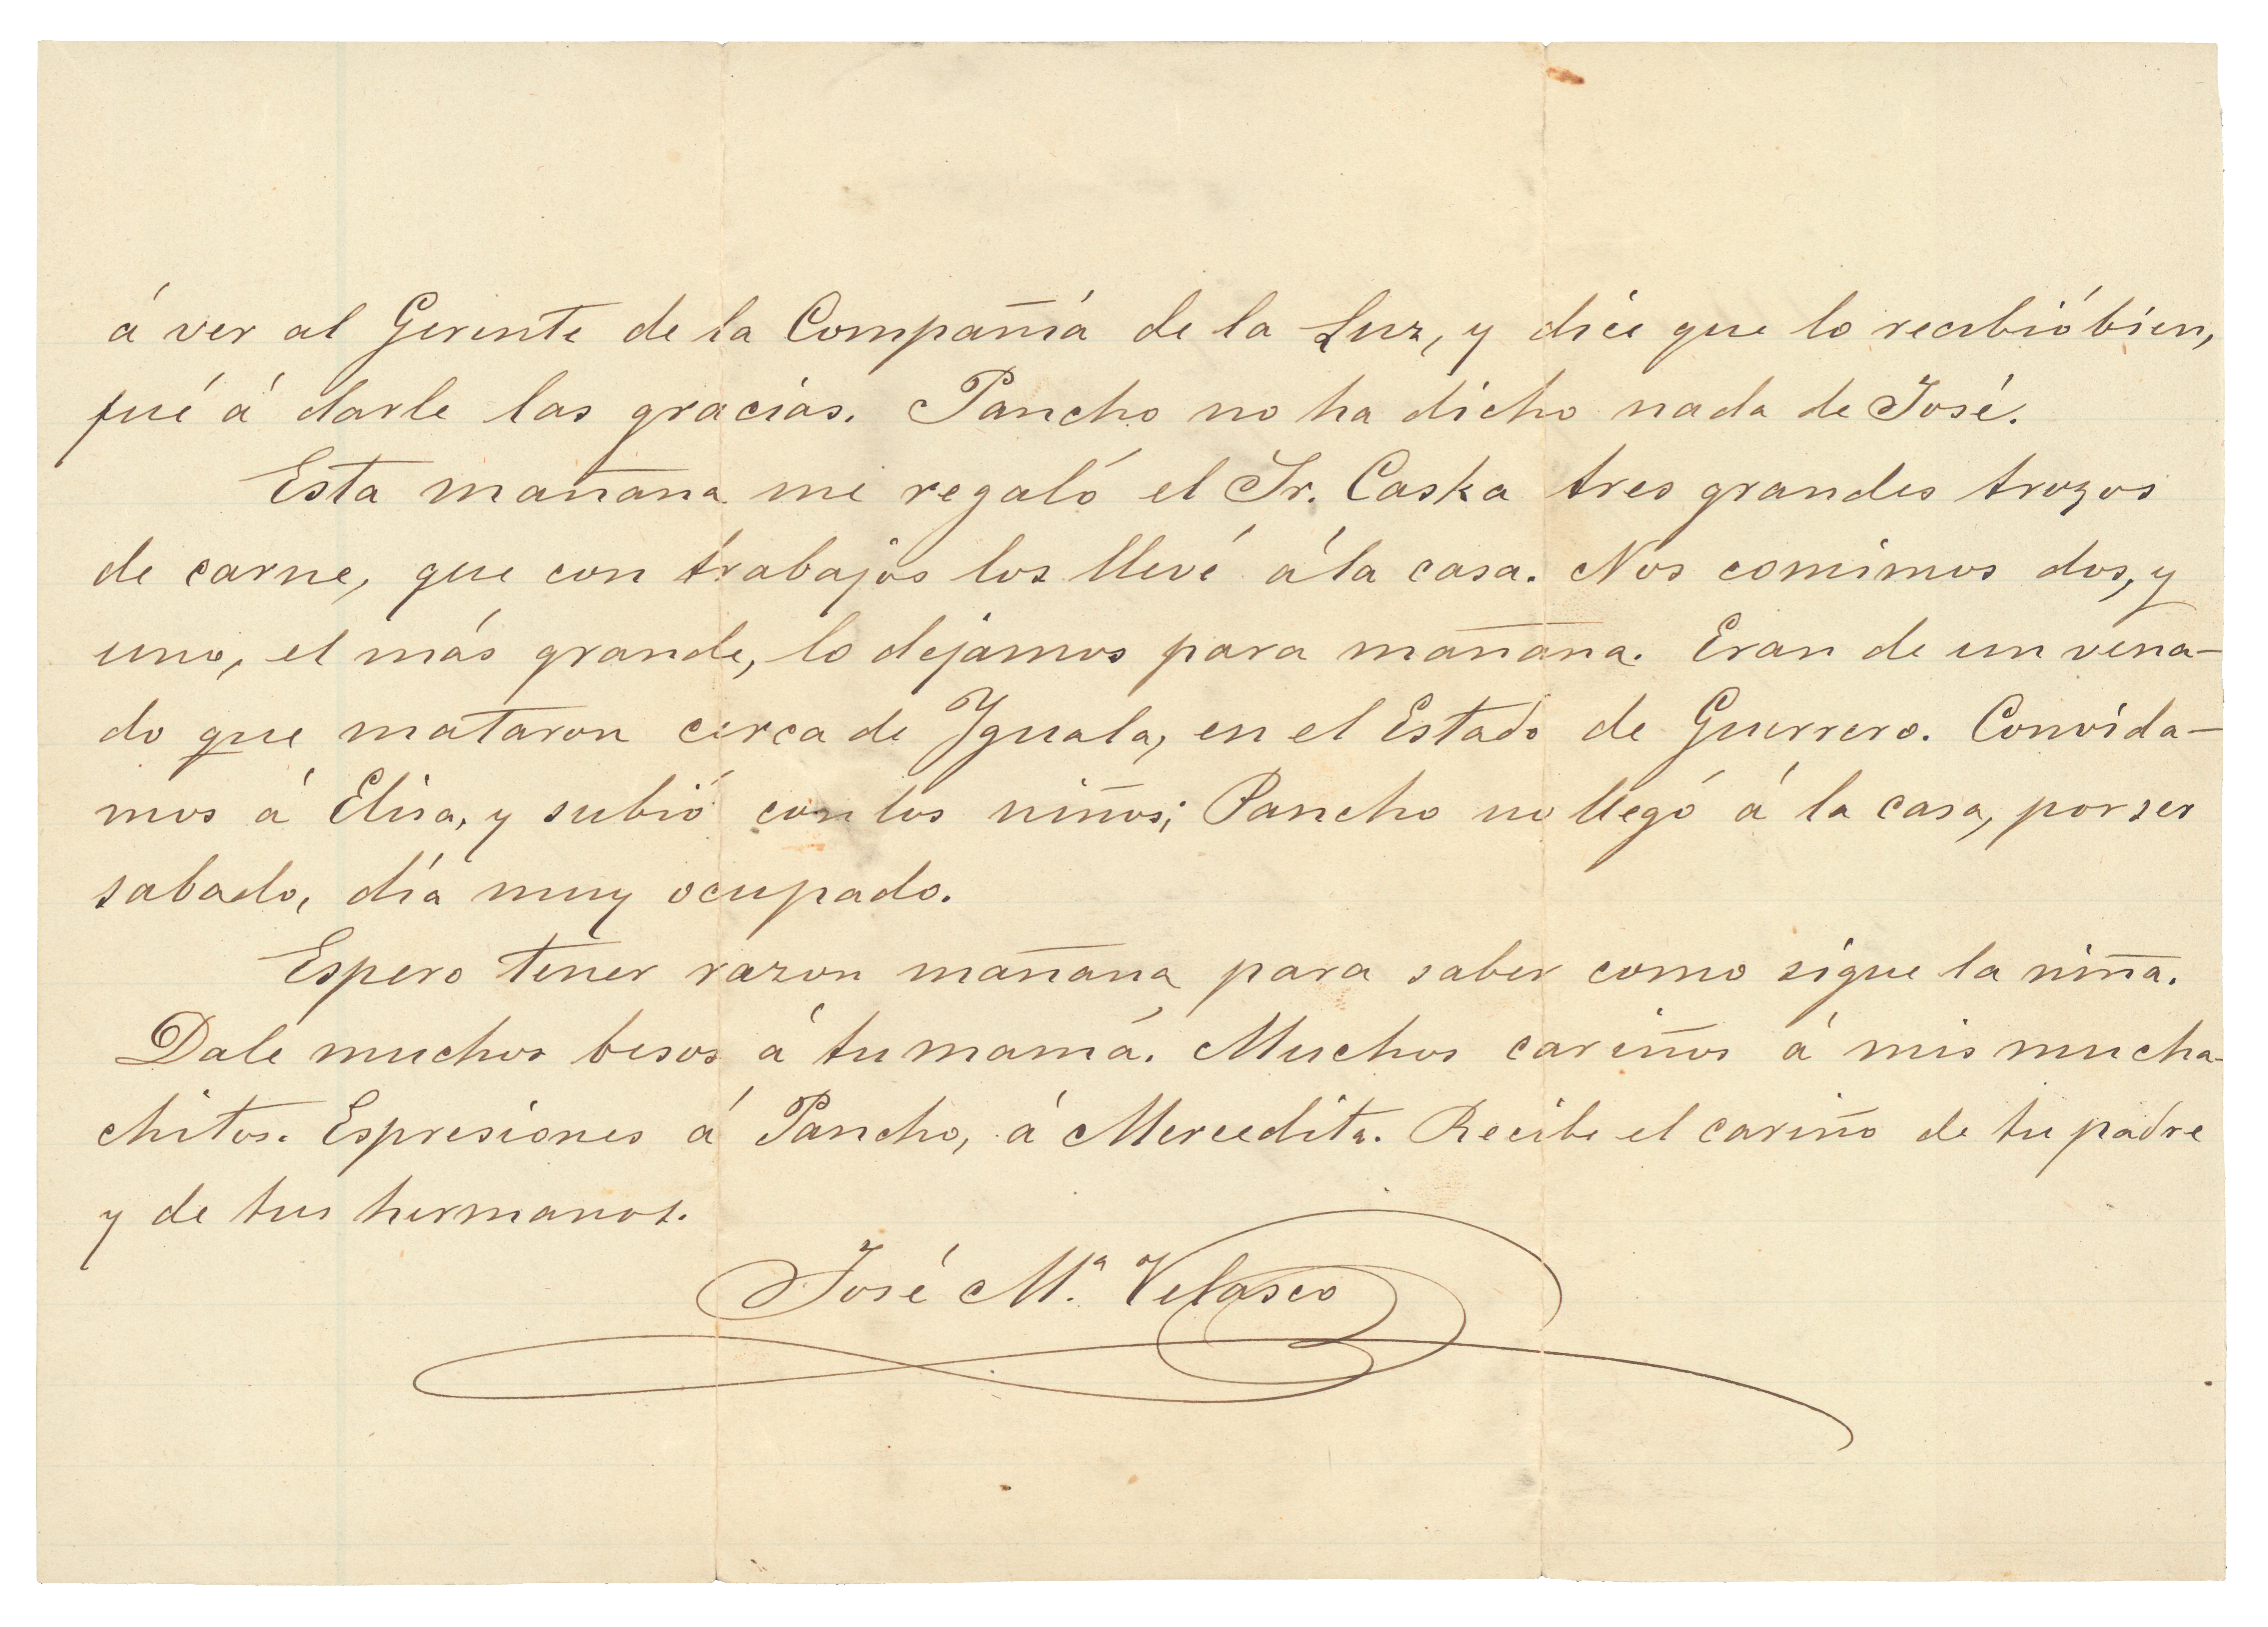 á ver al Gerente de la Compañiá de la Luz, y dice que lo recibió bien,
fué á darle las gracias. Pancho no ha dicho nada de José.
Esta mañana me regaló el Sr. Caska tres grandes trozos
de carne, que con trabajos los llevé á la casa. Nos comimos dos, y
uno, el más grande, lo dejamos para mañana. Eran de un vena-
do que mataron cerca de Iguala, en el Estado de Guerrero. Convida-
mos á Elisa, y subió con los niños; Pancho no llegó á la casa, por ser
sabado, día muy ocupado.
Espero tener razon mañana para saber como sigue la niña.
Dale muchos besos á tu mamá. Muchos cariños á mis mucha-
chitos. Espresiones á Pancho, á Mercedita. Recibe el cariño de tu padre
y de tus hermanos.
José Ma. Velasco